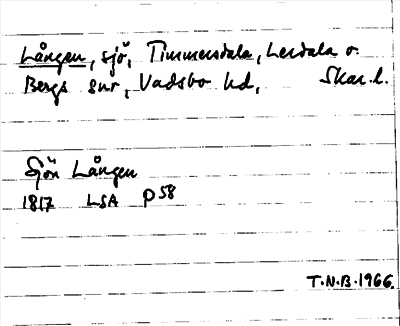 Lången, sjö, Timmersdala, Lerdala o.
Bergs snr, Vadsbo hd, Skar.l.
Sjön Lången
1817 LSA P58
T.N.B.1966.